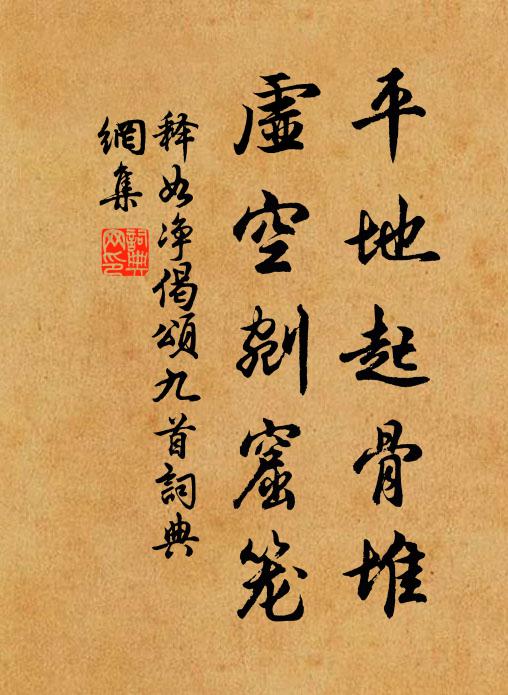 平地起骨堆
虚空剜窟笼
释如净偈颂九首詞典
網集
詞典網印